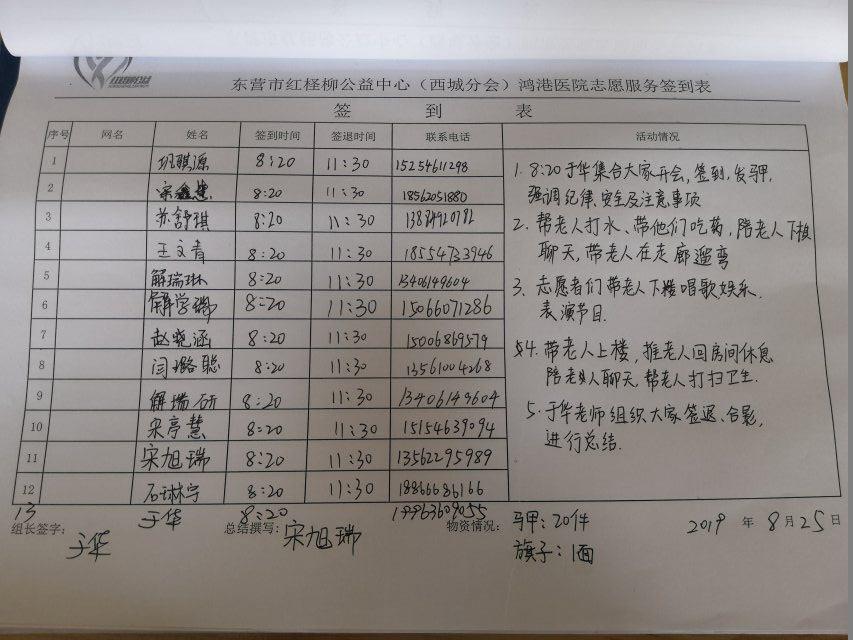 东营市红柽柳公益中心（西城分会）鸿港医院志愿服务签到表
签 到 表
序号 网名 姓名 签到时间 签退时间 联系电话 活动情况
1 巩骐源 8:20 11:30 15254611298
2 8:20 11:30 18562051880
3 苏舒琪 8:20 11:30
4 王文青 8:20 11:30 18554733946
5 解瑞琳 8:20 11:30 13406149604
6 解学瑞 8:20 11:30 15066071286
7 赵晓涵 8:20 11:30 15006869579
8 闫璐聪 8:20 11:30 13561004268
9 解瑞研 8:20 11:30 13406149604
10 宋亭慧 8:20 11:30 15154639094
11 宋旭瑞 8:20 11:30 13562295989
12 石琳宁 8:20 11:30 18866686166
13 于华 8:20 19963609055
1. 8:20于华集合大家开会,签到,发马甲,
强调纪律、安全及注意事项
2. 帮老人打水、带他们吃药,陪老人下棋
聊天,带老人在走廊遛弯
3. 志愿者们带老人下楼唱歌娱乐.
表演节目.
4. 带老人上楼,推老人回房间休息
陪老人聊天,帮老人打扫卫生.
5. 于华老师组织大家签退、合影,
进行总结.
组长签字： 于华 总结撰写： 宋旭瑞 物资情况： 马甲：20件
旗子：1面
2019 年 8 月 25 日